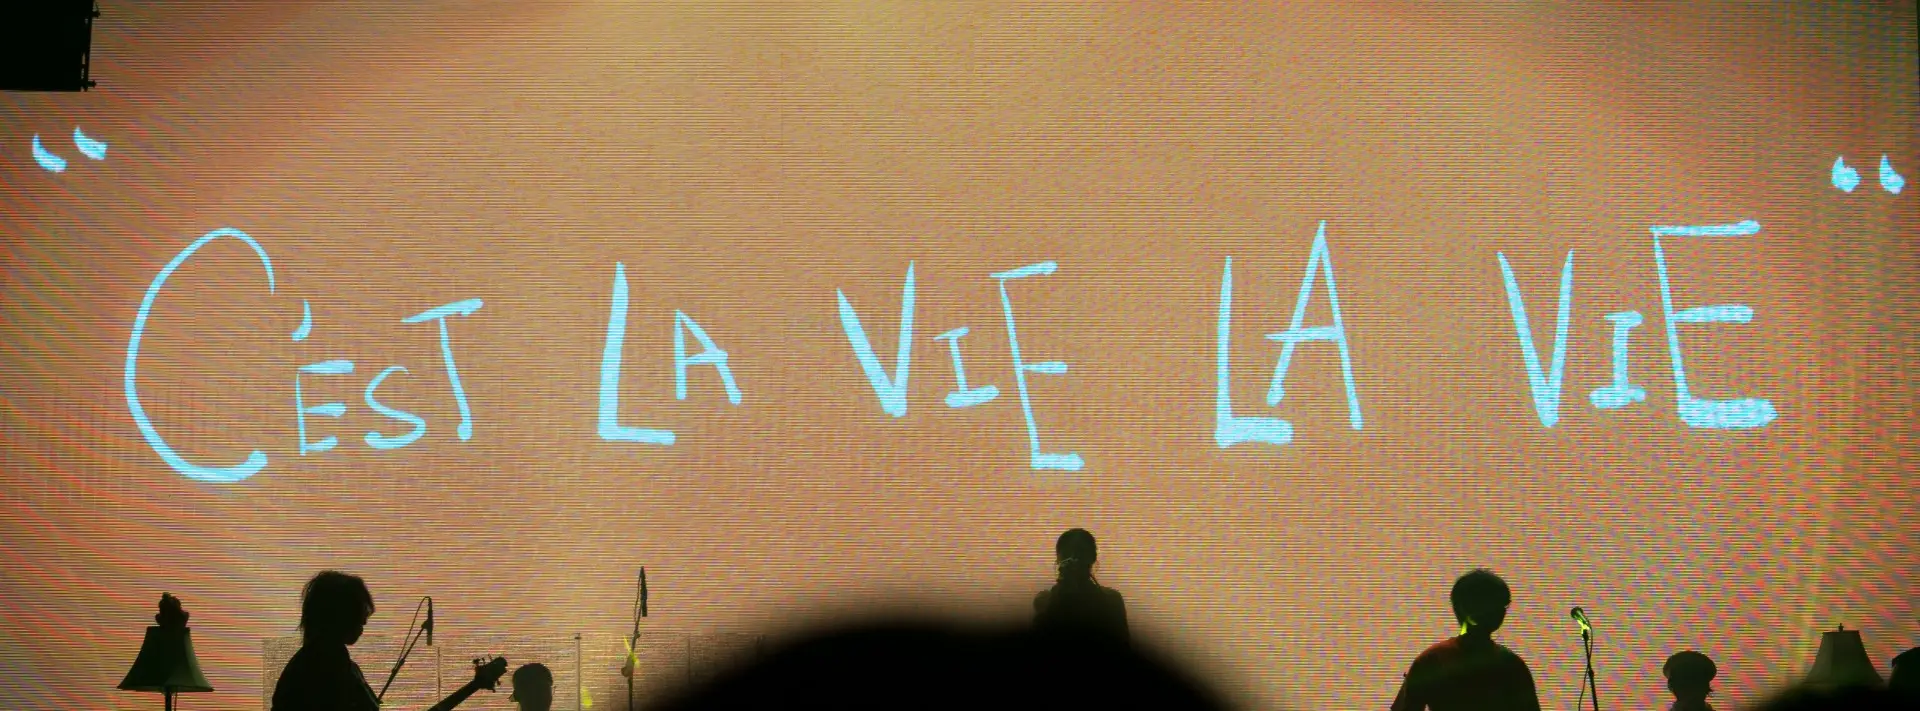 “C'EST LA VIE LA VIE“